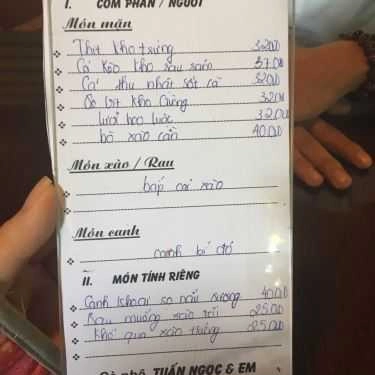 I. CƠM PHẦN / NGƯỜI
Món mặn
Thịt kho trứng 32.00
Cá kèo kho rau răm 37.00
Cá thu nhật sốt cà 32.00
kho gừng 32.00
lưỡi heo luộc 32.00
bò xào cần 40.00
Món xào / Rau
bắp cải xào
Món canh
canh bí đỏ
II. MÓN TÍNH RIÊNG
Canh khoai sọ nấu xương 40.00
Rau muống xào tỏi 25.00
Khổ qua xào trứng 25.00
TUẤN NGỌC & EM